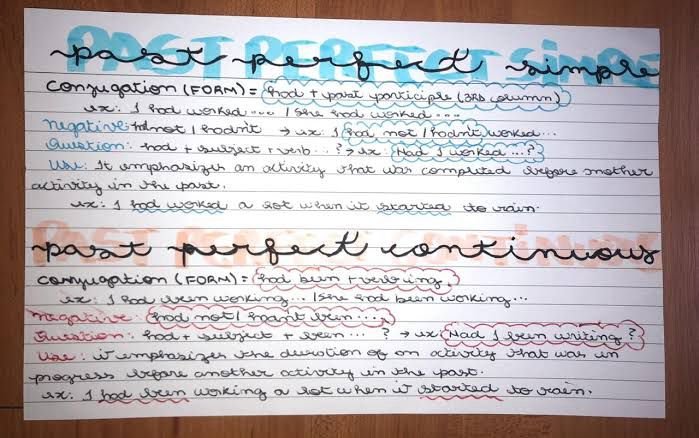 past perfect simple
PAST PERFECT SIMPLE
conjugation (FORM) = had + past participle (3RD column)
ex: I had worked ... / She had worked ...
negative: had not / hadn't → ex: I had not / hadn't worked...
Question: had + subject + verb ... ? → ex: Had I worked...?
Use: It emphasizes an activity that was completed before another
activity in the past.
ex: I had worked a lot when it started to rain.
past perfect continuous
PAST PERFECT CONTINUOUS
conjugation (FORM) = had been + verb ing.
ex: I had been working... / She had been working...
negative: had not / hadn't been....
Question: had + subject + been ... ? → ex: Had I been writing?
Use: it emphasizes the duration of an activity that was in
progress before another activity in the past.
ex: I had been working a lot when it started to rain.